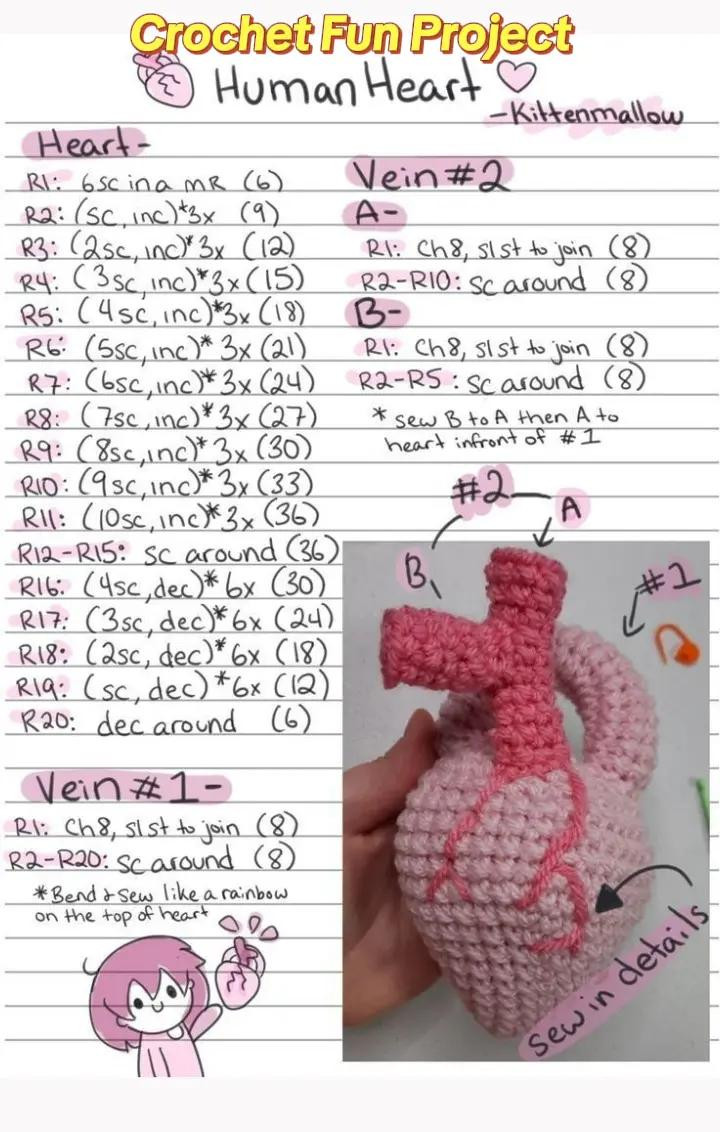 Crochet Fun Project
Human Heart
-Kittenmallow
Heart-
R1: 6sc in a MR (6)
R2: (sc, inc)*3x (9)
R3: (2sc, inc)*3x (12)
R4: (3sc, inc)*3x (15)
R5: (4sc, inc)*3x (18)
R6: (5sc, inc)*3x (21)
R7: (6sc, inc)*3x (24)
R8: (7sc, inc)*3x (27)
R9: (8sc, inc)*3x (30)
R10: (9sc, inc)*3x (33)
R11: (10sc, inc)*3x (36)
R12-R15: sc around (36)
R16: (4sc, dec)*6x (30)
R17: (3sc, dec)*6x (24)
R18: (2sc, dec)*6x (18)
R19: (sc, dec)*6x (12)
R20: dec around (6)
Vein #1-
R1: Ch8, sl st to join (8)
R2-R20: sc around (8)
*Bend & sew like a rainbow
on the top of heart
Vein #2
A-
R1: Ch8, sl st to join (8)
R2-R10: sc around (8)
B-
R1: Ch8, sl st to join (8)
R2-R5: sc around (8)
* sew B to A then A to
heart infront of #1
#2
A
B
#1
sew in details